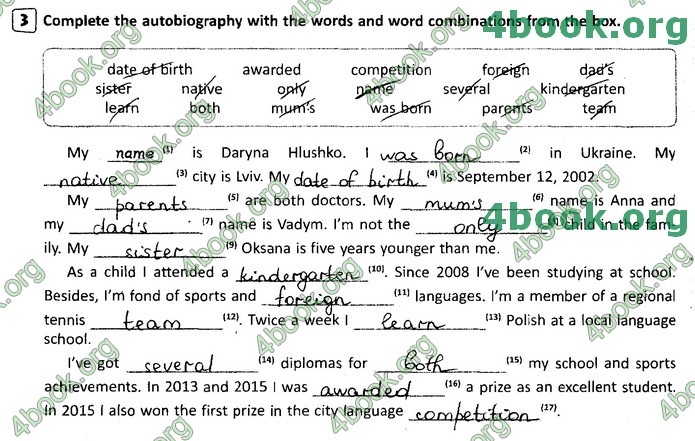 3 Complete the autobiography with the words and word combinations from the box.
4book.org
date of birth awarded competition foreign dad's
sister native only name several kindergarten
learn both mum's was born parents team
My name (1) is Daryna Hlushko. I was born (2) in Ukraine. My
native (3) city is Lviv. My date of birth (4) is September 12, 2002.
My parents (5) are both doctors. My mum's (6) name is Anna and
my dad's (7) name is Vadym. I'm not the only (8) child in the fam-
ily. My sister (9) Oksana is five years younger than me.
4book.org
As a child I attended a kindergarten (10). Since 2008 I've been studying at school.
Besides, I'm fond of sports and foreign (11) languages. I'm a member of a regional
tennis team (12). Twice a week I learn (13) Polish at a local language
school.
I've got several (14) diplomas for both (15) my school and sports
achievements. In 2013 and 2015 I was awarded (16) a prize as an excellent student.
In 2015 I also won the first prize in the city language competition (17).
4book.org